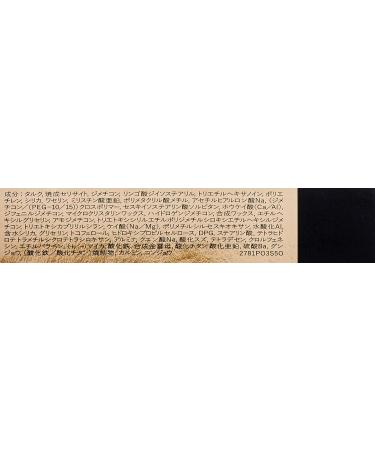 成分：タルク, 焼成セリサイト, ジメチコン, リンゴ酸ジイソステアリル, トリエチルヘキサノイン, ポリエ
チレン, シリカ, ワセリン, ミリスチン酸亜鉛, ポリメタクリル酸メチル, アセチルヒアルロン酸Na, （ジメ
チコン／（PEG-10／15））クロスポリマー, セスキイソステアリン酸ソルビタン, ホウケイ酸（Ca／Al）,
ジフェニルジメチコン, マイクロクリスタリンワックス, ハイドロゲンジメチコン, 合成ワックス, エチルヘ
キシルグリセリン, アモジメチコン, トリエトキシシリルエチルポリジメチルシロキシエチルヘキシルジメ
チコン, トリエトキシカプリリルシラン, ケイ酸（Na／Mg）, ポリメチルシルセスキオキサン, 水酸化Al,
含水シリカ, グリセリン, トコフェロール, ヒドロキシプロピルセルロース, DPG, ステアリン酸, テトラヒド
ロテトラメチルシクロテトラシロキサン, アルミナ, クエン酸Na, 酸化スズ, テトラデセン, クロルフェネ
シン, エチルパラベン, （+/-）マイカ, 酸化鉄, 合成金雲母, 酸化チタン, 酸化亜鉛, 硫酸Ba, グン
ジョウ, （酸化鉄／酸化チタン）焼結物, カルミン, コンジョウ
2781PO3S50